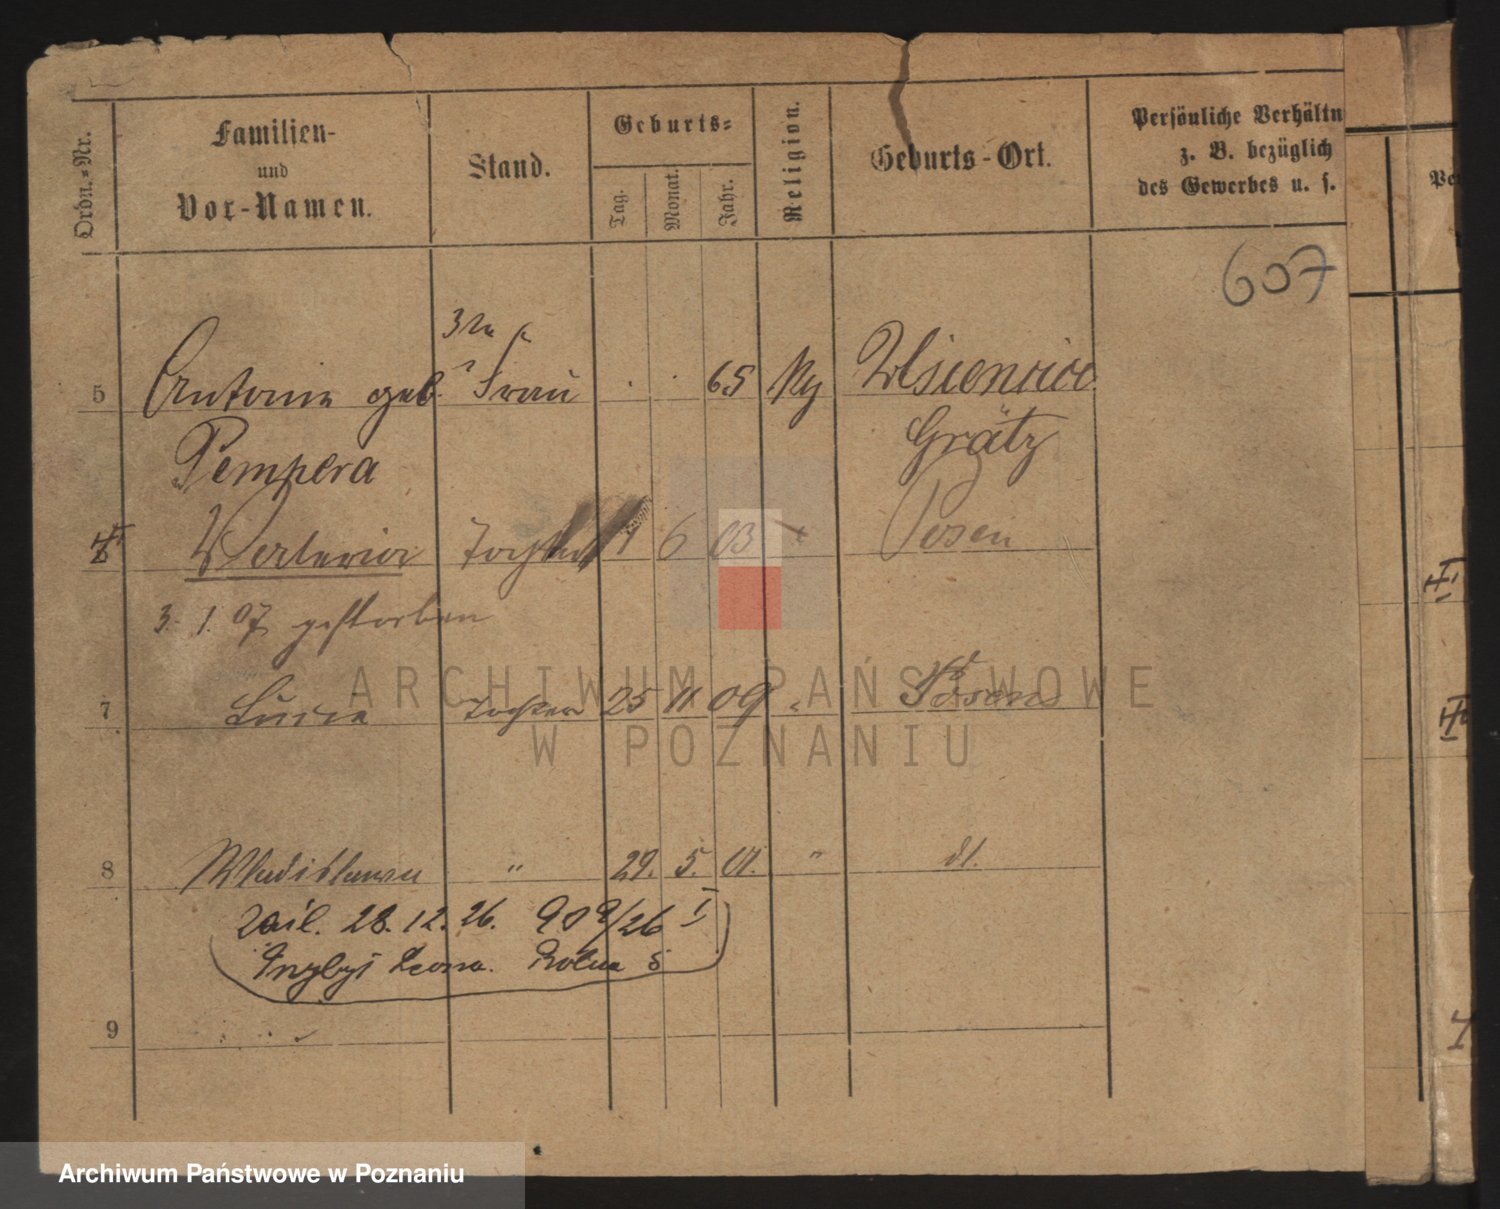 Ordn.-Nr.
Familien-
und
Vor-Namen.
Stand.
Geburts-
Tag.
Monat.
Jahr.
Religion.
Geburts-Ort.
Persönliche Verhältn
z. B. bezüglich
des Gewerbes u. s.
607
5 Antonie geb. Frau 65
Pempera Grätz
Tochter 1 6 03 Posen
3. 1. 07 gestorben
7 Lucie Tochter 25 11 09 Posen
8 Wladislawa " 29. 5. 01. " dt.
28. 12. 26. 909/26 I
Leona. Rolna 5
9
ARCHIWUM PAŃSTWOWE
W POZNANIU
Archiwum Państwowe w Poznaniu